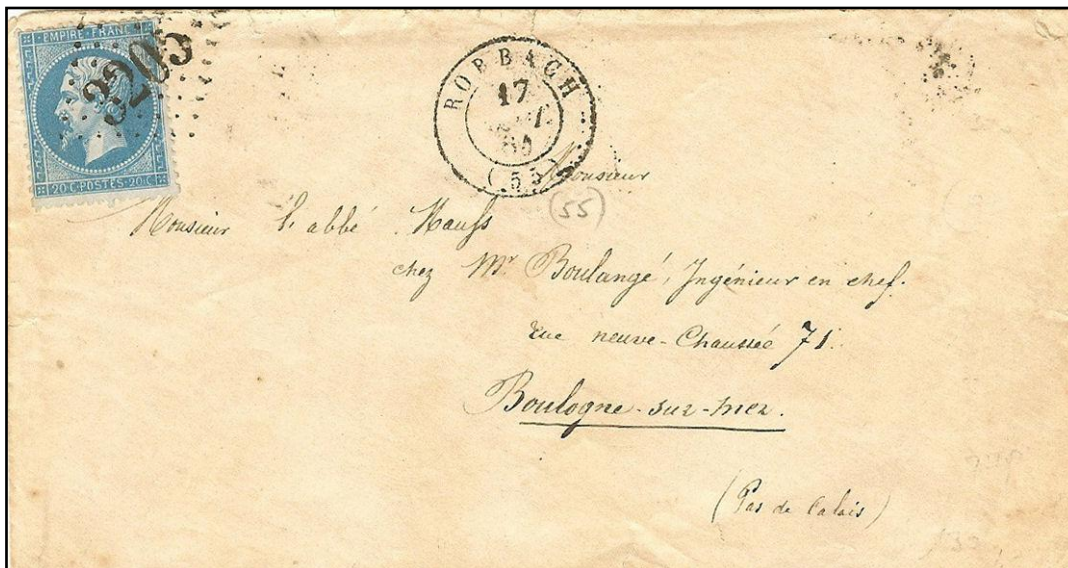 EMPIRE FRANC
3205
20 C. POSTES 20 C.
ROHRBACH
17
(55)
Monsieur
(55)
Monsieur l'abbé
chez Mr Boulangé, Ingénieur en chef.
rue neuve-Chaussée 71.
Boulogne-sur-mer.
(Pas de Calais)